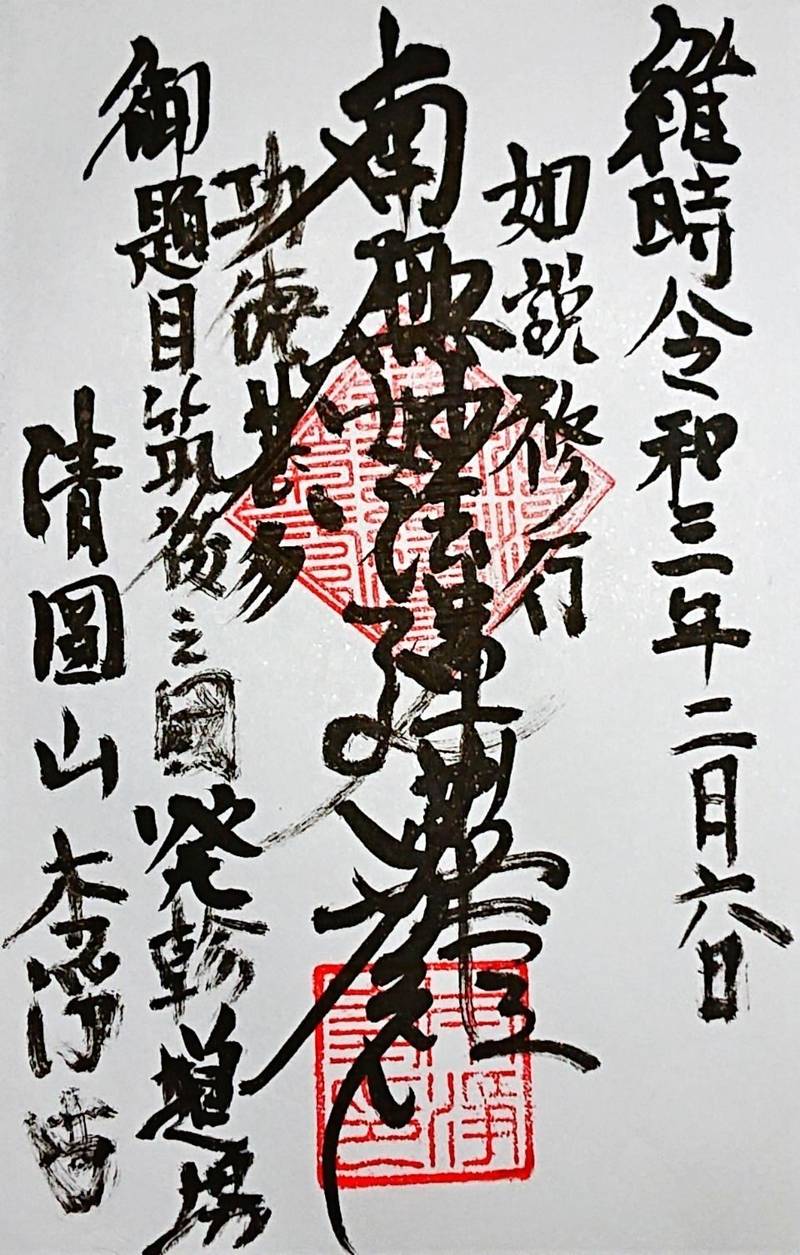 維時令和三年二月六日
如説修行
南無妙法蓮華経
功徳甚多
御題目筑後之国発軫道場
清圓山本浄寺